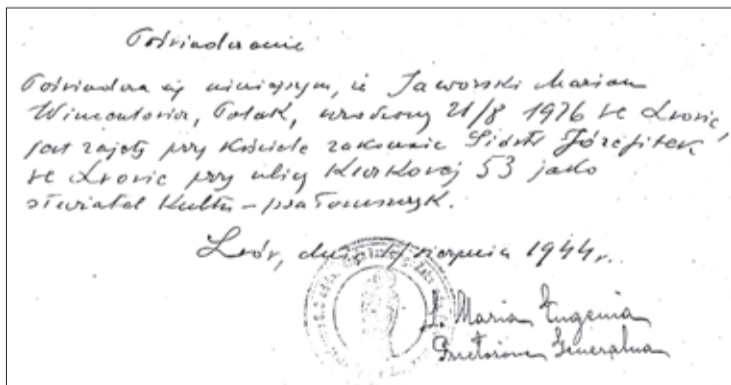 Poświadczenie
Poświadcza się niniejszym, że Jaworski Marian
Wincentowicz, Polak, urodzony 21/8 1926 we Lwowie,
jest zajęty przy kościele zakonnie Sióstr Józefitek
we Lwowie przy ulicy Kurkowej 53 jako
Kultu -
Lwów, dnia sierpnia 1944 r.
S. Maria Eugenia
Przełożona Generalna